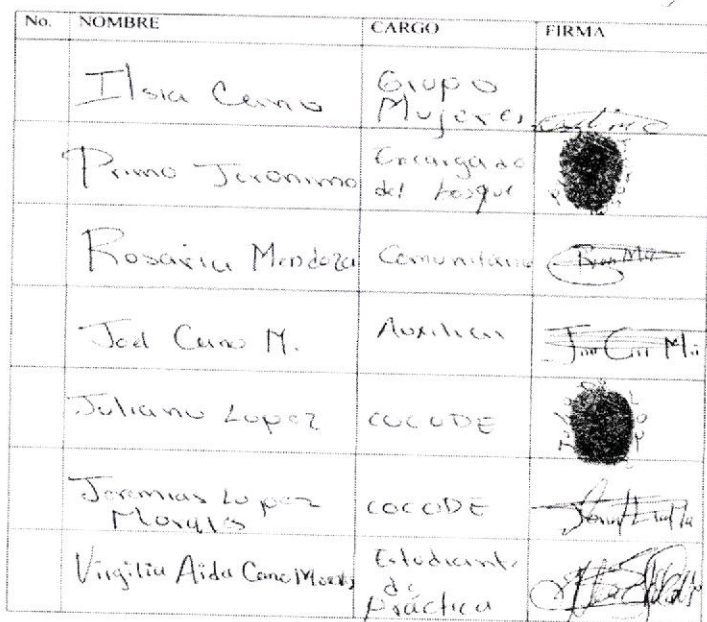 No. NOMBRE CARGO FIRMA
Ilsia Cano Grupo
Mujeres
Primo Jeronimo Encargado
del bosque
Rosaria Mendoza Comunitaria
Joel Cano M. Auxiliar
Juliano Lopez COCODE
Jeremias Lopez
Morales COCODE
Virgilia Aida Cano Estudiante
de
práctica